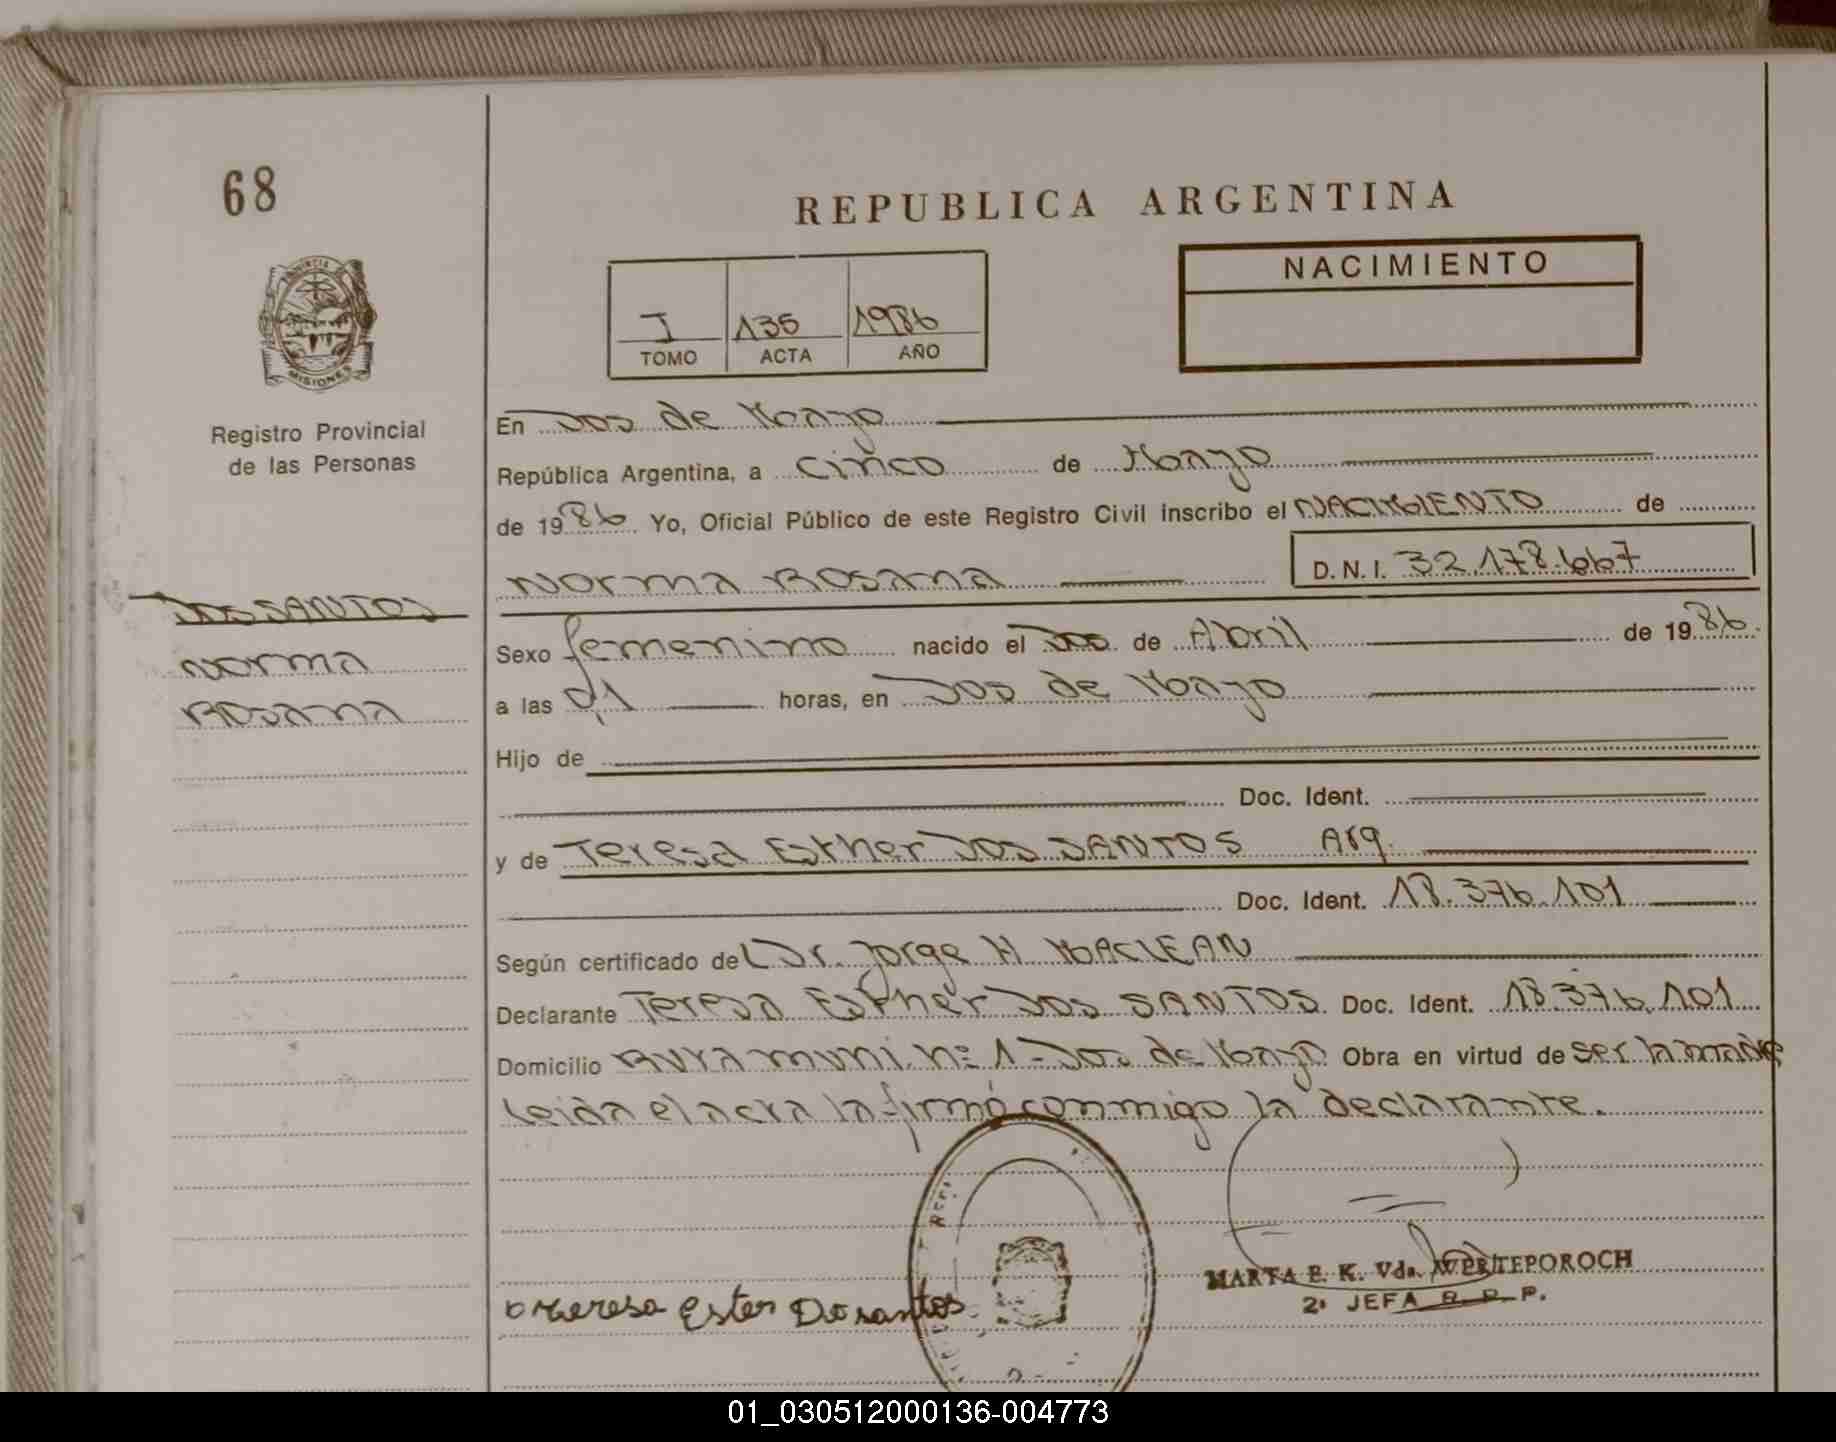 68
REPUBLICA ARGENTINA
NACIMIENTO
I 135 1986
TOMO ACTA AÑO
PROVINCIA DE
MISIONES
Registro Provincial
de las Personas
En Dos de Mayo
República Argentina, a cinco de Mayo
de 1986 Yo, Oficial Público de este Registro Civil inscribo el NACIMIENTO de
NORMA ROSANA D.N.I. 32.178.667
DOS SANTOS
NORMA
ROSANA
Sexo femenino nacido el Dos de Abril de 1986
a las 0,1 horas, en Dos de Mayo
Hijo de
Doc. Ident.
y de Teresa Esther DOS SANTOS Arg.
Doc. Ident. 18.376.101
Según certificado del Dr. Jorge H MACLEAN
Declarante Teresa Esther DOS SANTOS Doc. Ident. 18.376.101
Domicilio Ruta muni. nº 1 - Dos de Mayo Obra en virtud de ser la madre
Leida el acta la firmó conmigo la declarante.
MARTA E. K. Vda.
2ª JEFA R. P. P.
Teresa Ester Dosantos
01_030512000136-004773